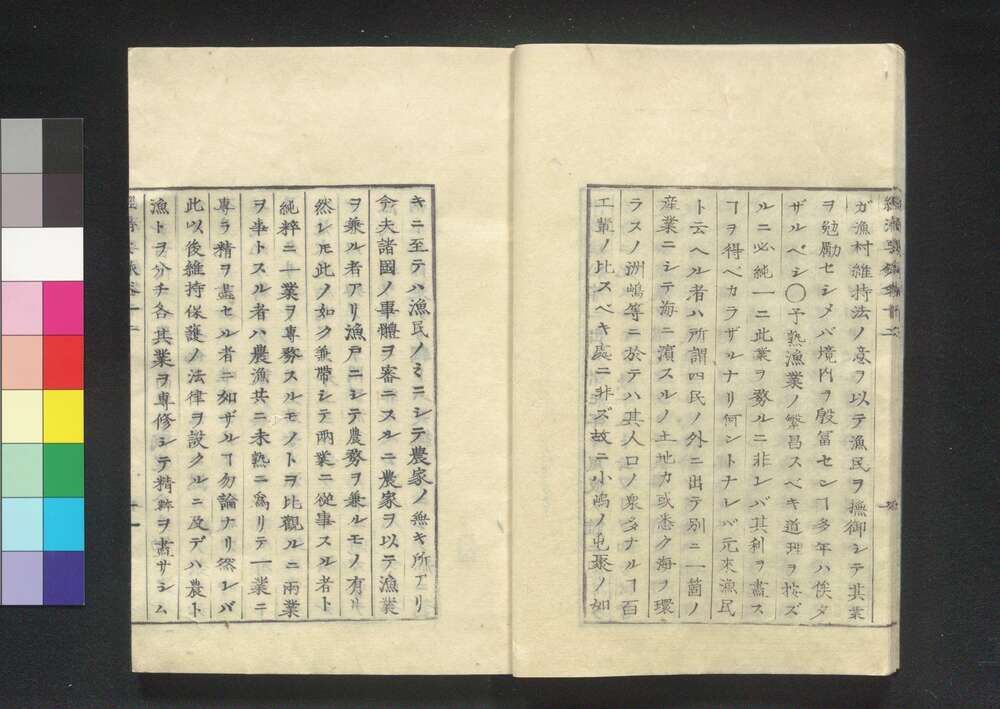 ガ漁村維持法ノ意ヲ以テ漁民ヲ撫御シテ其業
ヲ勉勵セシメバ境内ヲ殷冨センヿ多年ハ俟タ
ザルベシ〇予熟漁業ノ繁昌スベキ道理ヲ按ズ
ルニ必純一ニ此業ヲ務ルニ非レバ其利ヲ盡ス
ヿヲ得ベカラザルナリ何ントナレバ元來漁民
ト云ヘル者ハ所謂四民ノ外ニ出テ別ニ一箇ノ
産業ニシテ海ニ濱スルノ土地カ或悉ク海ヲ環
ラスノ洲嶋等ニ於テハ其人口ノ衆多ナルヿ百
工輩ノ比スベキ處ニ非ズ故ニ小嶋ノ屯聚ノ如
キニ至テハ漁民ノミニシテ農家ノ無キ所アリ
今夫諸國ノ事體ヲ審ニスルニ農家ヲ以テ漁業
ヲ兼ル者アリ漁戸ニシテ農務ヲ兼ルモノ有リ
然レモ此ノ如ク兼帶シテ兩業ニ從事スル者ト
純粹ニ一業ヲ専務スルモノトヲ比觀ルニ兩業
ヲ事トスル者ハ農漁共ニ未熟ニ爲リテ一業ニ
專ラ精ヲ盡セル者ニ如ザルヿ勿論ナリ然レバ
此以後維持保護ノ法律ヲ設クルニ及デハ農ト
漁トヲ分チ各其業ヲ専修シテ精粹ヲ盡サシム